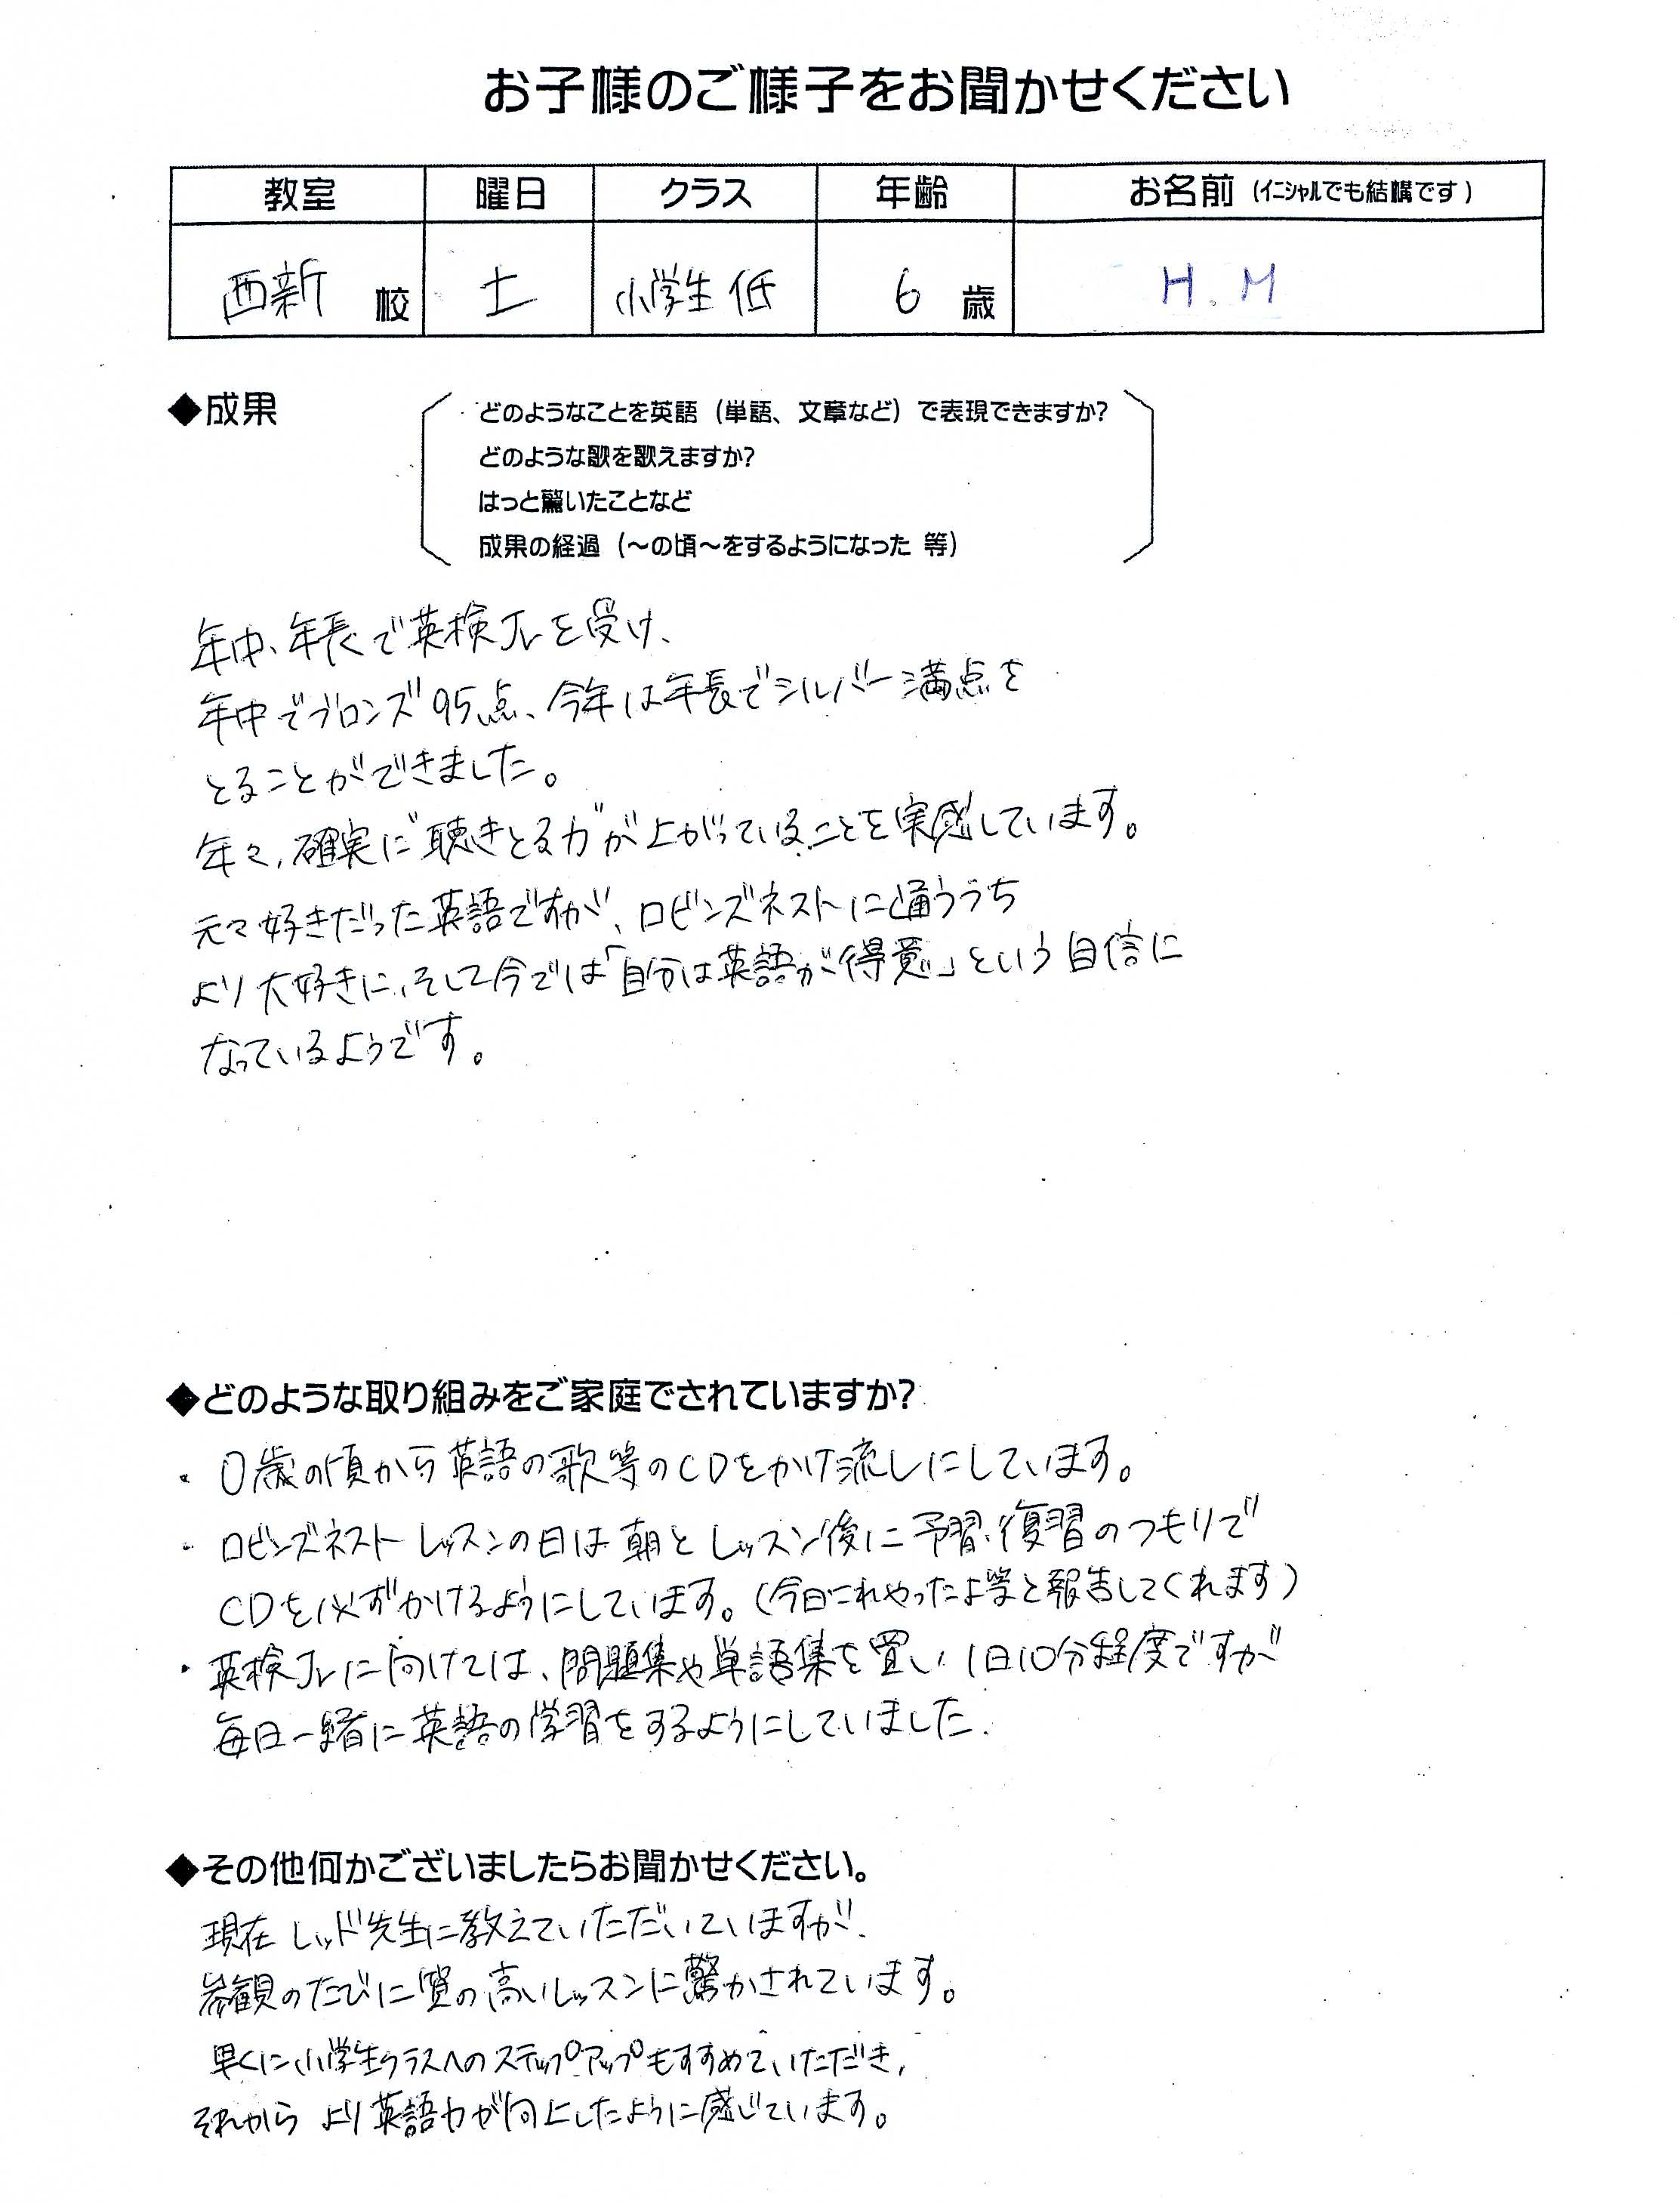 お子様のご様子をお聞かせください
教室 曜日 クラス 年齢 お名前（イニシャルでも結構です）
西新 校 土 小学生 低 6 歳 H.M
◆成果
どのようなことを英語（単語、文章など）で表現できますか？
どのような歌を歌えますか？
はっと驚いたことなど
成果の経過（～の頃～をするようになった 等）
年中、年長で英検Jrを受け、
年中でブロンズ95点、今年は年長でシルバー満点を
とることができました。
年々、確実に"聴きとる力"が上がっていることを実感しています。
元々好きだった英語ですが、ロビンズネストに通ううち
より大好きに、そして今では「自分は英語が得意」という自信に
なっているようです。
◆どのような取り組みをご家庭でされていますか？
・0歳の頃から英語の歌等のCDをかけ流しにしています。
・ロビンズネストレッスンの日は朝とレッスン後に予習、復習のつもりで
CDを必ずかけるようにしています。（今日これやったよ等と報告してくれます）
・英検Jrに向けては、問題集や単語集を買い、1日10分程度ですが
毎日一緒に英語の学習をするようにしていました。
◆その他何かございましたらお聞かせください。
現在レッド先生に教えていただいていますが、
参観のたびに質の高いレッスンに驚かされています。
早くに小学生クラスへのステップアップもすすめていただき、
それから より英語力が向上したように感じています。